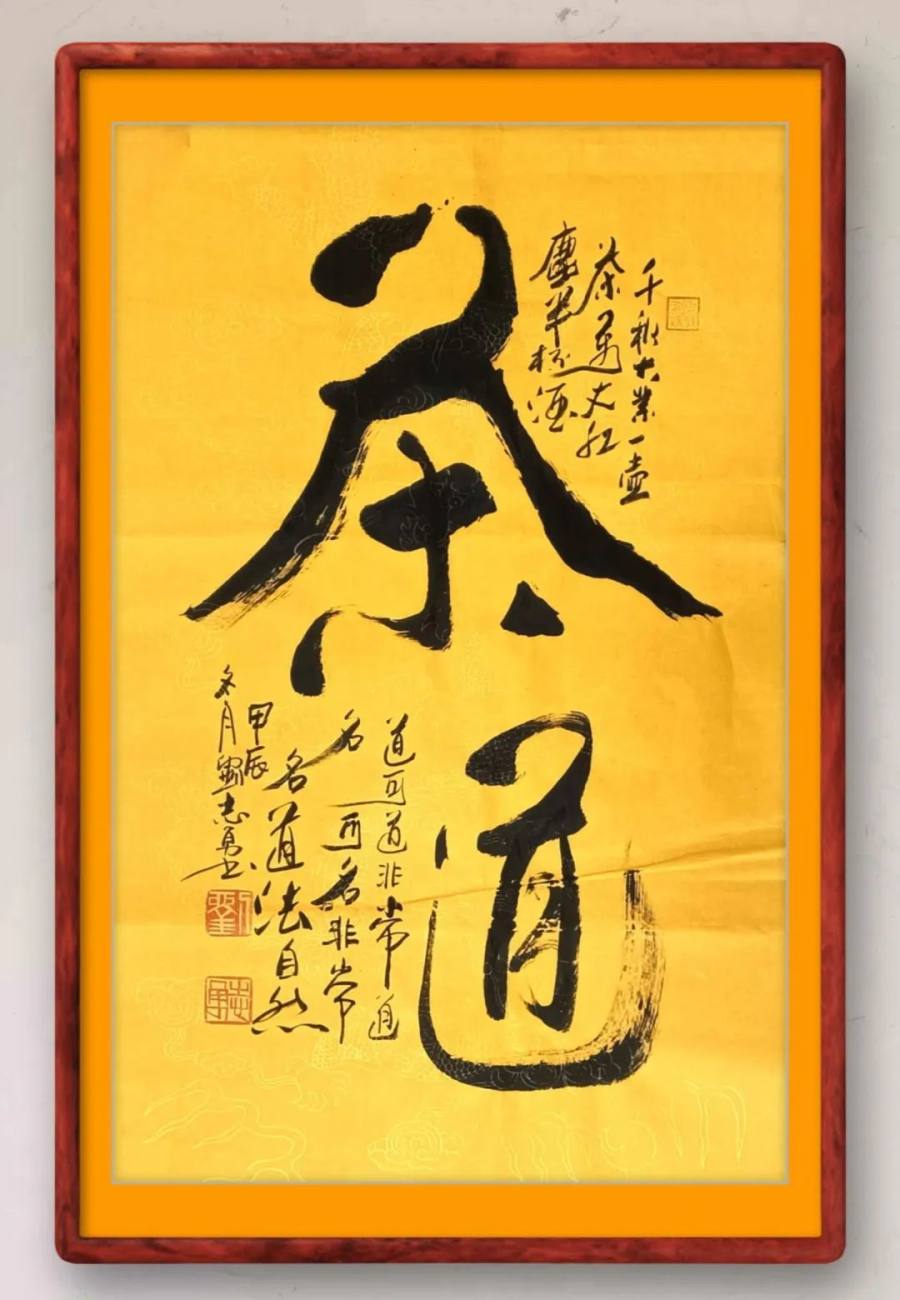 茶道
千秋大業一壺
茶萬丈红
塵半杯酒
道可道非常道
名可名非常
名道法自然
甲辰
冬月劉志勇书
志勇